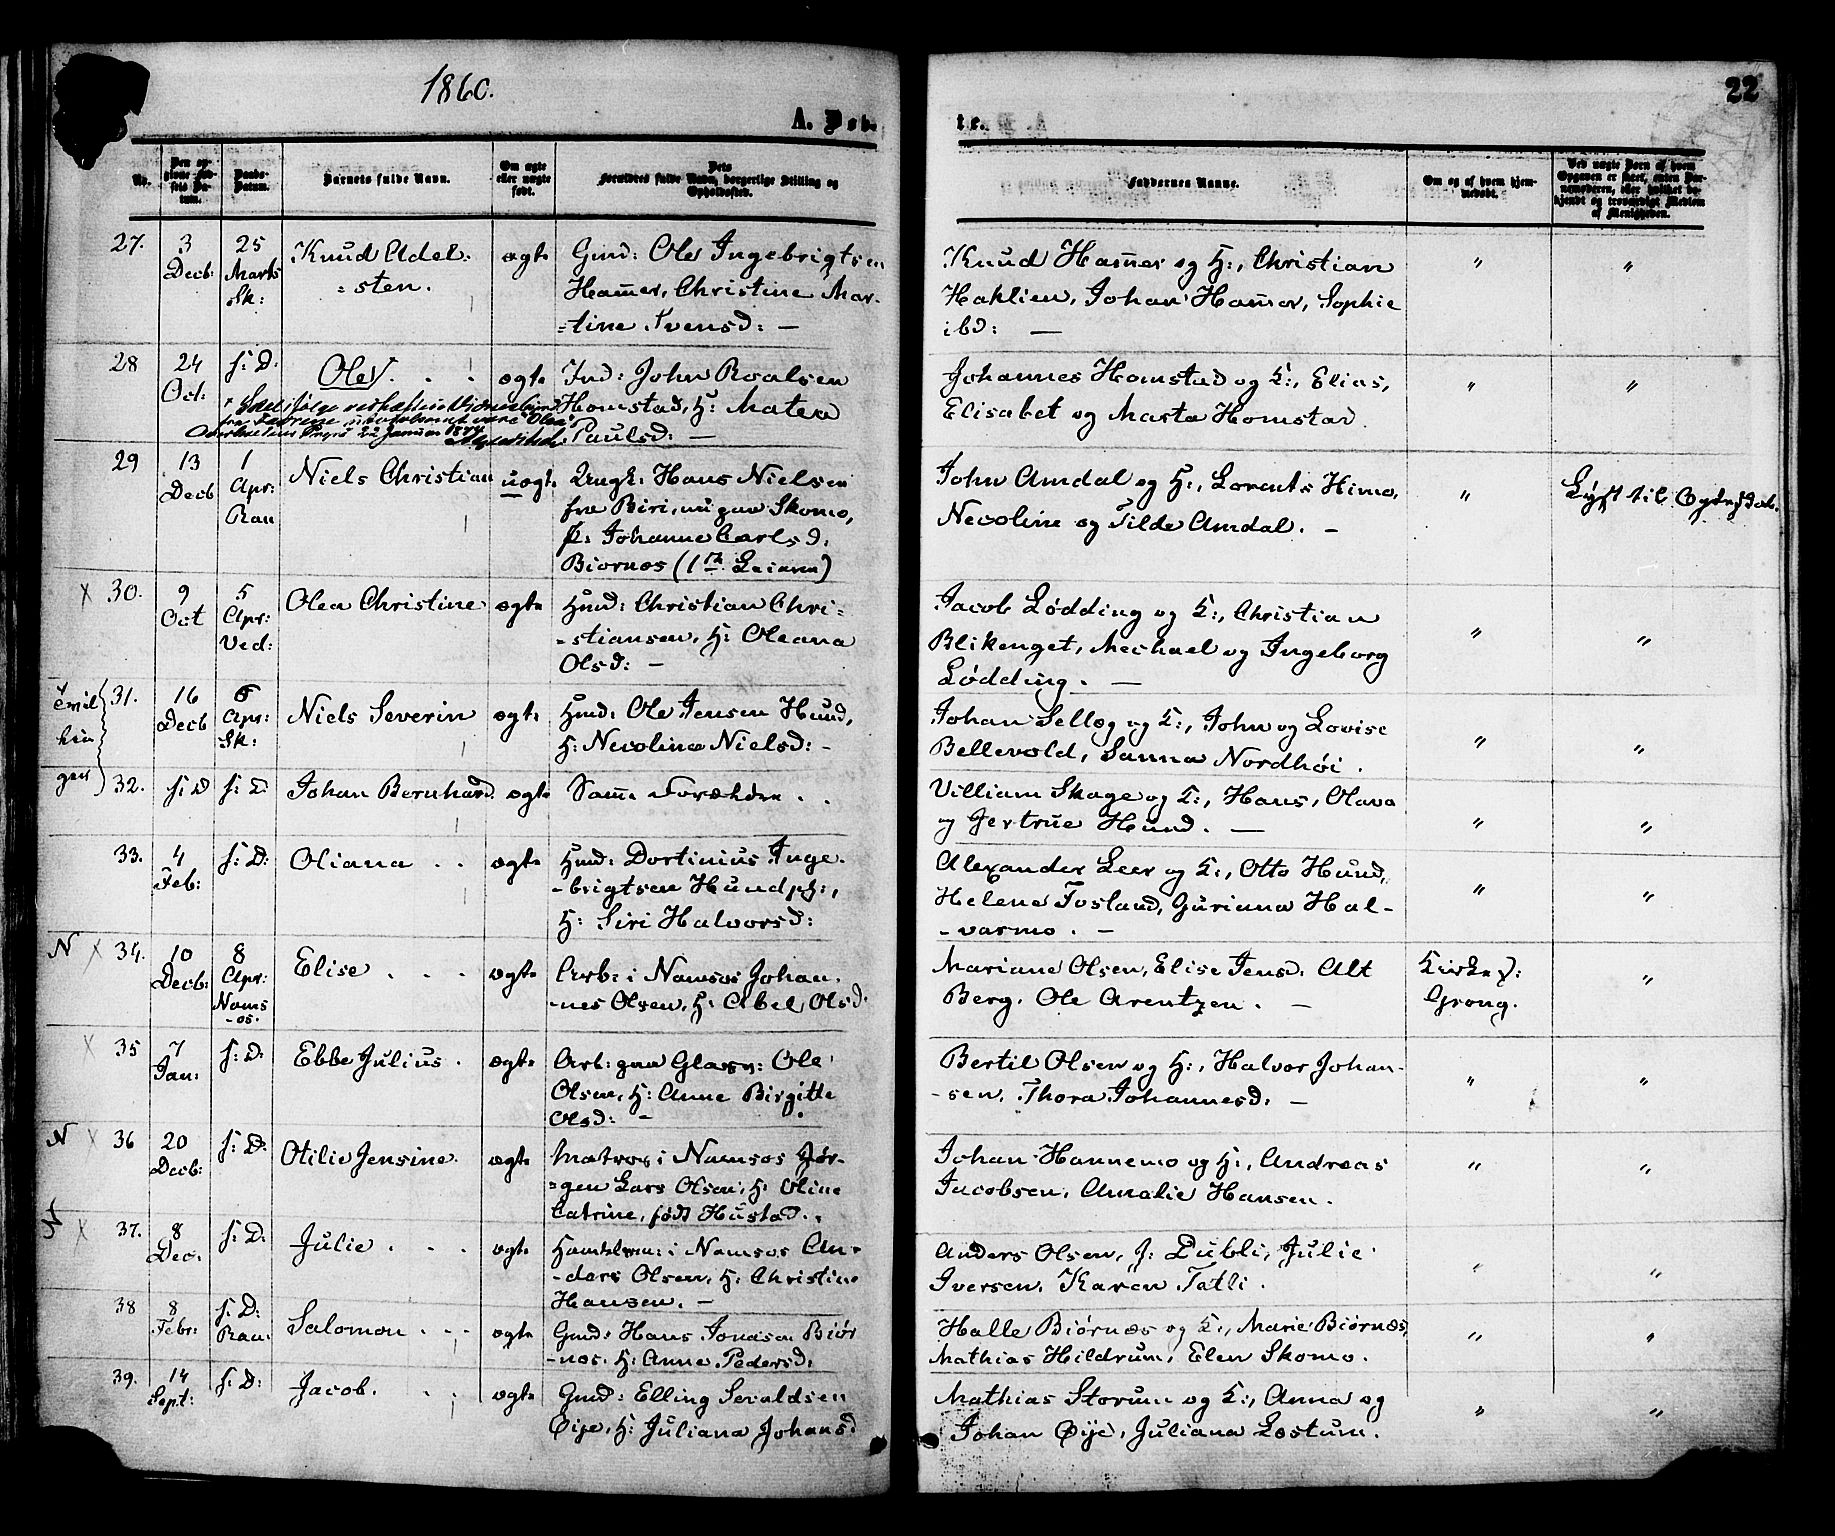 1860.
22
A. Døb-
te.
Nr.
Den opgivne Fødsels Datum.
Daabs-Datum.
Barnets fulde Navn.
Om ægte eller uægte født.
Forældres fulde Navn, borgerlige Stilling og Opholdssted.
Faddernes Navne.
Om og af hvem hjemmedøbt.
27. 3 Decb: 25 Marts Sk: Knud Adel-
=sten. ægte
Gmd: Ole Ingebrigtsen
Ham̅er, Christine Mar-
=tine Svensd: —
Knud Ham̅er og H:, Christian
Haklien, Johan Ham̅er, Sophie
ibd: —
" "
28 24 Oct: s: D: Ole . . ægte
Ind: John Roalsen
Homstad, H: Matea
Paulsd: —
22 Januar
Johannes Homstad og K:, Elias,
Elisabet og Marta Homstad.
" "
29 13 Decb 1 Apr: Ran Niels Christian uægte
Ungk: Hans Nielsen
fra Biri, nu paa Skomo,
P: Johanne Carlsd:
Biørnøs (1ste Leierm)
John Amdal og H:, Lorents Himo,
Nicoline og Tilde Amdal. —
"
x 30. 9 Oct 5 Apr: Ved: Olea Christine ægte
Hmd: Christian Chri=
-stiansen, H: Oleana
Olsd: —
Jacob Lødding og K:, Christian
Blikenget, Mechael og Ingeborg
Lødding. —
" "
31. 16 Decb 6 Apr: Sk: Niels Severin ægte
Hmd: Ole Jensen Hund,
H: Nicoline Nielsd: -
Johan Selløg og K:, John og Lovise
Bellevold, Sanna Nordhøi.
" "
32. s: D s: D Johan Bernhard. ægte
Sam̅e Forældre . .
Villiam Skage og K:, Hans, Olava
og Gertrue Hund. —
" "
33. 4 Feb: s: D: Oliana . . ægte
Hmd: Dortinius Inge-
-brigtsen Hund,
H: Siri Halvorsd:
Alexander Leer og K:, Otto Hund,
Helena Fosland, Guriana Hal-
-varmo . —
" "
N x 34. 10 Decb: 8 Apr: Nams-os. Elise . . . ægte
Arb: i Namsos Johan-
-nes Olsen, H: Abel Olsd:
Mariane Olsen, Elise Jensd: Alt
Berg. Ole Arentzen . —
Grong.
"
x 35 7 Jan: s: D: Ebbe Julius . ægte
Arb: paa Ole
Olsen, H: Anne Birgitte
Olsd: —
Bertil Olsen og H:, Halvor Johan-
-sen, Thora Johannesd: —
" "
N x 36 20 Decb: s: D: Otilie Jensine. ægte
Matros i Namsos Jør-
=gen Lars Olsen, H: Oline
Catrine, født Hustad. .
Johan Hannemo og H:, Andreas
Jacobsen, Amalie Hansen.
" "
N x 37. 8 Dec: s: D: Julie . . . ægte
i Namsos An-
-ders Olsen, H: Christine
Hansen. —
Anders Olsen, J: Dubli, Julie
Iversen, Karen Fatli.
" "
38 8 Febr: s: D: Ran: Salomon . . . ægte
Gmd: Hans Jonasen Biør
-nøs. H: Anne Pedersd:
Halle Biørnøs og K:, Marie Biørnøs,
Mathias Heildrum, Elen Skomo.
" "
39. 14 Sept: s: D: Jacob. . . ægte
Gmd: Elling Sevaldsen
Øije, H: Juliana Johansd
Mathias Storum og K:, Anna og
Johan Øije, Juliana Løstum.
" "